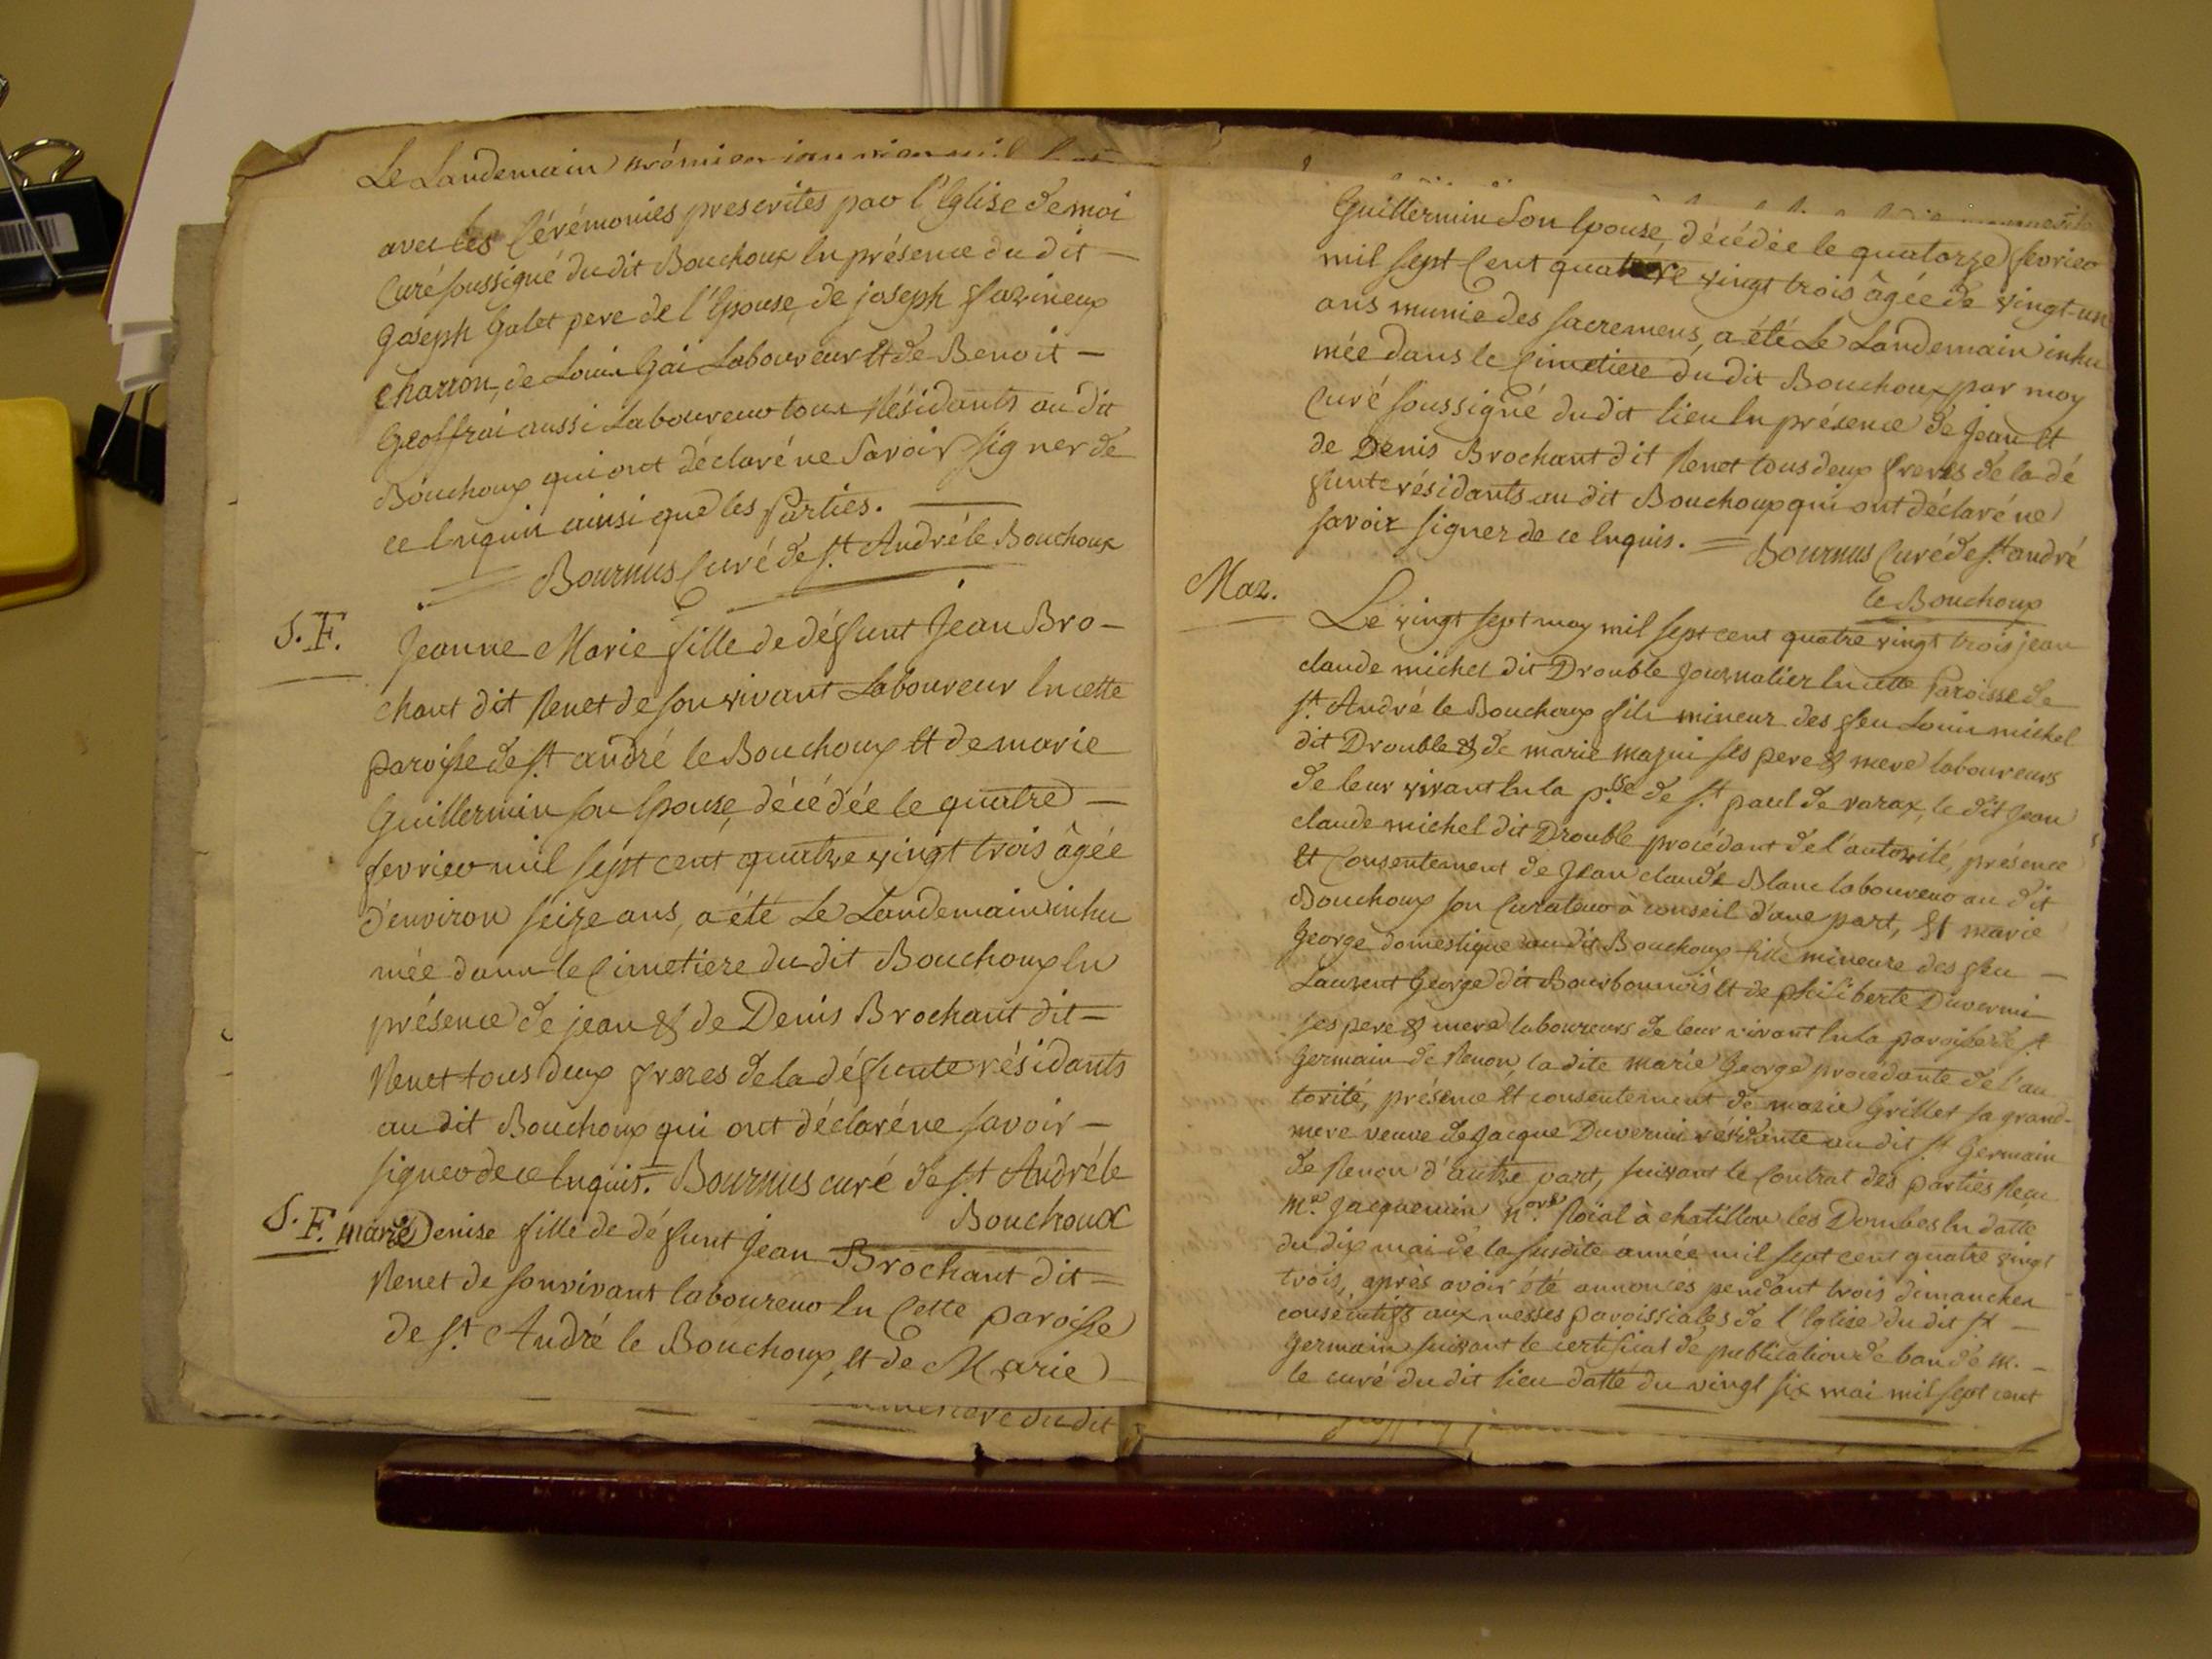 Le Landemain prémier janvier mil
avec les Cérémonies prescrites par l'Eglise de moi
Curé soussigné du dit Bouchoux En présence du dit —
Joseph Galet pere de l'Epouse, de joseph farineux
Charron, de Louis Gai Laboureur Et de Benoit —
Geoffrai aussi Laboureur tous Résidants au dit
Bouchoux qui ont déclaré ne Savoir signer de
ce Enquis ainsi que les Parties.
Bournus Curé de st. André le Bouchoux
S. F. Jeanne Marie fille de défunt Jean Bro-
chant dit Renet de son vivant Laboureur En cette
paroisse de st. andré le Bouchoux Et de marie
Guillermin son Epouse, décédée le quatre —
fevrier mil sept cent quatre vingt trois âgée
d'environ seize ans, a été Le Landemain inhu
mée dans le Cimetiere du dit Bouchoux En
présence de jean & de Denis Brochant dit —
Renet tous deux freres de la défunte résidants
au dit Bouchoux qui ont déclaré ne savoir —
signer de ce Enquis. = Bournus curé de st. André le
Bouchoux
S. F. marie Denise fille de défunt Jean Brochant dit =
Renet de son vivant laboureur En Cette paroisse
de st. André le Bouchoux, Et de Marie
cimetiere du dit
Guillermin Son Epouse, décédée le quatorze fevrier
mil sept Cent quatre vingt trois âgée de vingt-un
ans munie des sacremens, a été Le Landemain inhu
mée dans le Cimetiere du dit Bouchoux par moy
Curé soussigné du dit lieu En présence de Jean Et
de Denis Brochant dit Renet tous deux freres de la dé
funte résidants au dit Bouchoux qui ont déclaré ne
savoir signer de ce Enquis. = Bournus Curé de st. andré
le Bouchoux
Mar. Le vingt sept may mil sept cent quatre vingt trois jean
claude michel dit Drouble Journalier En cette Paroisse de
st. André le Bouchoux fils mineur des feu Louis michel
dit Drouble & de marie majui ses pere & mere laboureurs
de leur vivant En la p.sse de st. paul de varax, le dit Jean
claude michel dit Drouble procédant de l'autorité, présence
Et Consentement de Jean claude Blanc laboureur au dit
Bouchoux son Curateur à conseil d'une part, Et marie
George domestique au dit Bouchoux fille mineure des feu —
Laurent George dit Bourbonnois Et de philiberte Duverni
ses pere & mere laboureurs de leur vivant En la paroisse de st
Germain de Renon, la dite marie George procédante de l'au
torité, présence Et consentement de marie Grillet sa grand-
mere veuve de Jacque Duverni résidante au dit st. Germain
de Renon d'autre part, suivant le Contrat des parties Reçu
Me. Jacquemin nore. Roial à chatillon les Dombes En datte
du dix mai de la susdite année mil sept cent quatre vingt
trois, après avoir été annoncés pendant trois dimanches
consécutifs aux messes paroissiales de l'Eglise du dit st —
Germain suivant le certificat de publication de ban de M. —
le curé du dit lieu datté du vingt six mai mil sept cent